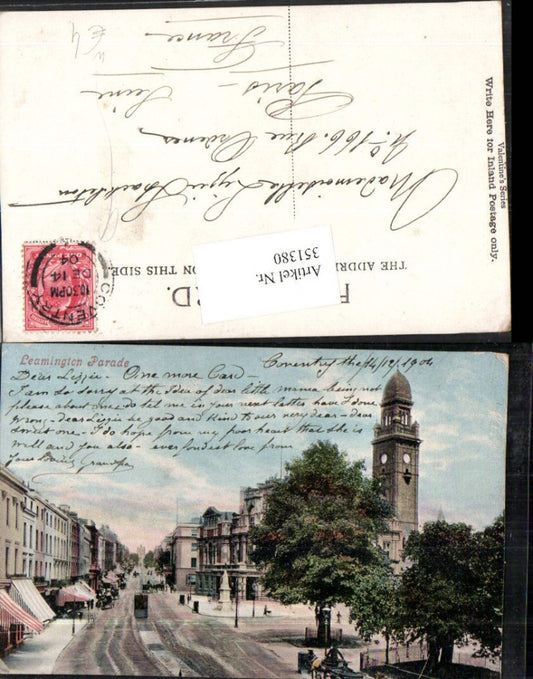 £4
Valentine's Series
Write Here for Inland Postage only.
THE ADDRE ON THIS SIDE
RD.
Artikel Nr.
351380
Mademoiselle Lizzie
No. 166. Rue Ordener
Paris -
Seine
France -
COVENTRY
10.30PM
DE 14
04
Leamington Parade
Coventry the 14/12/1904
Dear Lizzie - One more Card -
I am so sorry at the Idea of dear little mima being not
please about me do tell me in your next letter have I done
wrong - dear Lizzie is good and Kind to our very dear - dear
sweet one - I do hope from my poor heart that she is
Well and you also - ever fondest love from
Your Grandpa